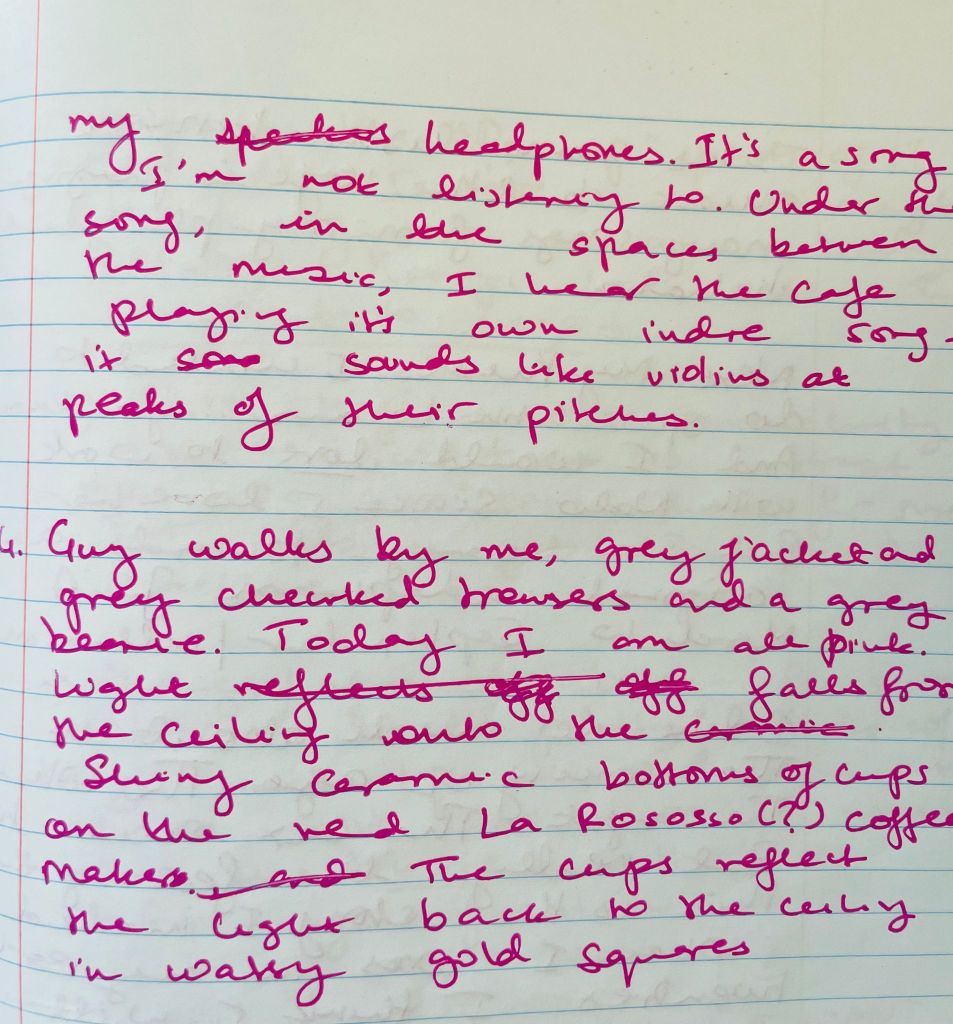 my speakers headphones. It's a song
I'm not listening to. Under the
song, in the spaces between
the music, I hear the cafe
playing it's own indie song.
it sou sounds like violins at
peaks of their pitches.
4. Guy walks by me, grey jacket and
grey checked trousers and a grey
beanie. Today I am all pink.
Light reflects off off falls from
the ceiling onto the ceramic.
Shiny ceramic bottoms of cups
on the red La Rososso (?) coffee
maker. and The cups reflect
the light back to the ceiling
in watry gold squares